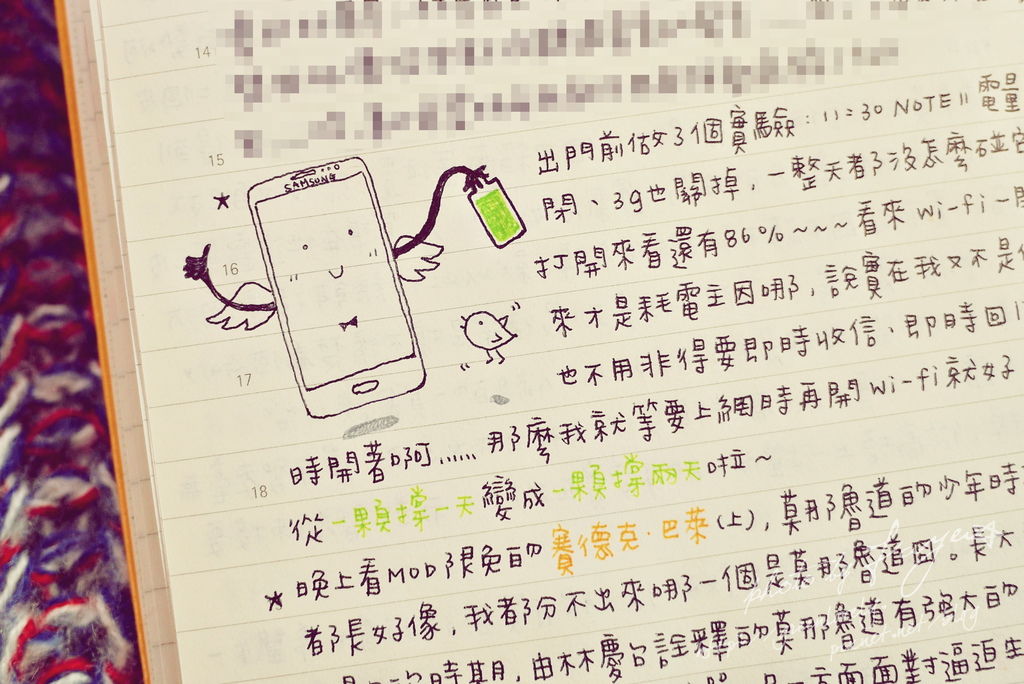 14
15
出門前做了個實驗：11:30 NOTE II 電量
★
SAMSUNG
閉、3g也關掉，一整天都沒怎麼碰它
16
打開來看還有86%~~~看來 wi-fi 一開
來才是耗電主因哪，說實在我又不是
17
也不用非得要即時收信、即時回
時開著啊……那麼我就等要上網時再開wi-fi就好
18
從一顆撐一天變成一顆撐兩天啦~
★晚上看MOD限免的賽德克·巴萊(上)，莫那魯道的少年時
都長好像，我都分不出來哪一個是莫那魯道囧。長大
時期，由林慶台詮釋的莫那魯道有強大的
方面面對逼迫生